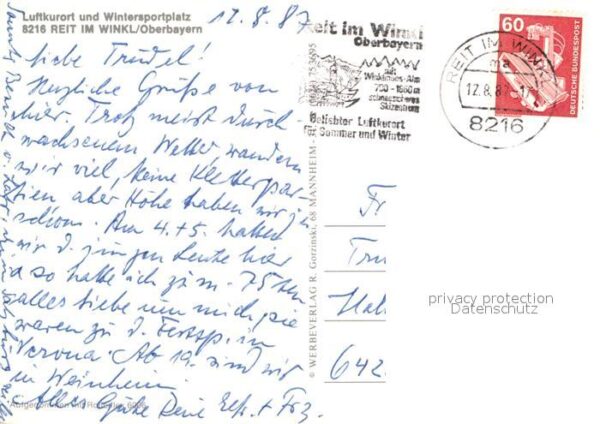 Luftkurort und Wintersportplatz
8216 REIT IM WINKL/Oberbayern
12.8.87
Liebe Trudel!
Herzliche Grüße von
hier. Trotz meist durch-
wachsenem Wetter, wandern
wir viel, keine Kletterpar-
tien aber Höhe haben wir ja
schon. Am 4.+5. hatten
wir d. jungen Leute hier
u so hatte ich zum 75sten
alles Liebe um mich, sie
waren zu d. Festsp. in
Verona. Ab 19. sind wir
in Weinheim.
Alles Gute Deine + Frz.
Reit im Winkl
Oberbayern
mit
Winklmoos-Alm
700 - 1800 m
schneesicheres
Skizentrum
Beliebter Luftkurort
für Sommer und Winter
REIT IM WINKL
ma
12.8.87-17
8216
60
DEUTSCHE BUNDESPOST
© WERBEVERLAG R. Gorzinski, 68 MANNHEIM -
F
Tru
Ha
642
privacy protection
Datenschutz